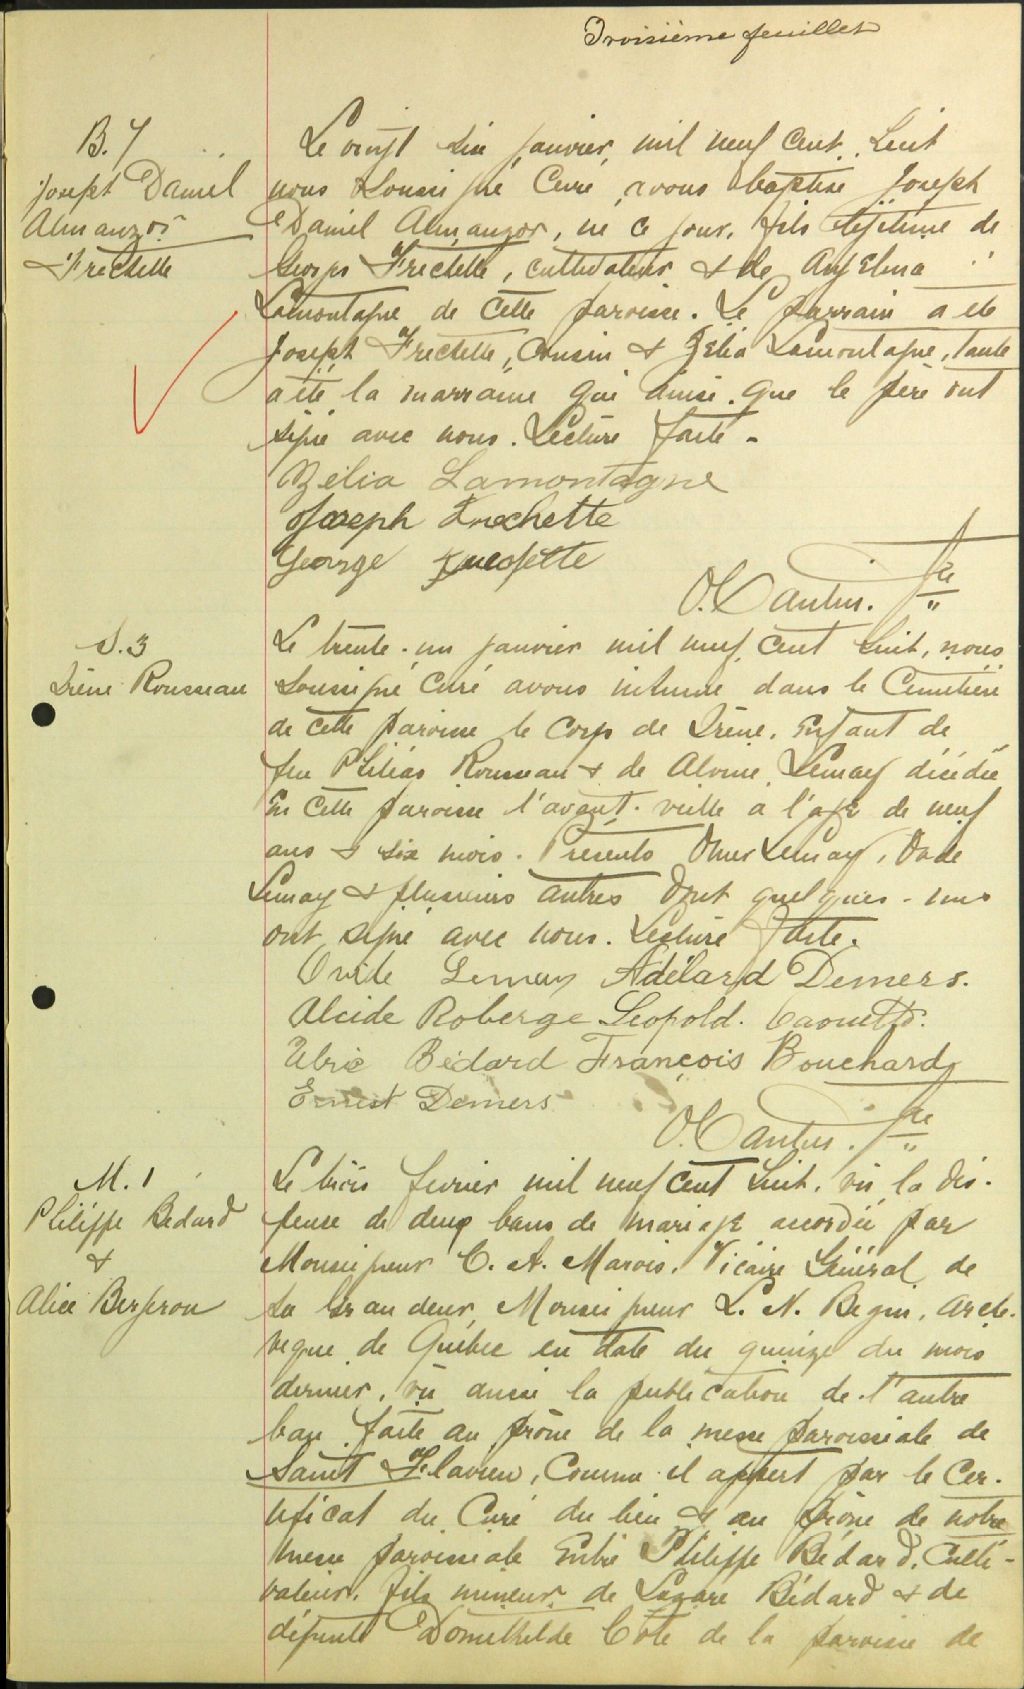 Troisième feuillet
B. 7
Joseph Daniel
Almanzor
Frechette
Le vingt six janvier mil neuf cent huit
nous soussigné Curé avons baptisé Joseph
Daniel Almanzor, né ce jour, fils légitime de
Georges Frechette, cultivateur & de Angelina
Lamontagne de cette paroisse. Le parrain a été
Joseph Frechette, Cousin & Zélia Lamontagne, tante
a été la marraine qui ainsi que le père ont
signé avec nous. Lecture faite -
Zélia Lamontagne
Joseph Frechette
George Frechette
O. Cantin. Ptre
S. 3
Irène Rousseau
Le trente-un janvier mil neuf cent huit, nous
soussigné Curé avons inhumé dans le Cimetière
de cette paroisse le corps de Irène, Enfant de
feu Philéas Rousseau & de Alvine Lemay décédée
En cette paroisse l'avant-veille à l'âge de neuf
ans & six mois. Présents Omer Lemay, Ovide
Lemay & plusieurs autres dont quelques-uns
ont signé avec nous. Lecture faite.
Ovide Lemay Adélard Demers.
Alcide Roberge Léopold. Caouette.
Ulric Bédard François Bouchard
Ernest Demers
O. Cantin. Ptre
M. 1
Philippe Bedard
&
Alice Bergeron
Le trois fevrier mil neuf cent huit, vu la dis-
pense de deux bans de mariage accordée par
Monseigneur C. A. Marois, Vicaire Général de
Sa Grandeur, Monseigneur L. N. Begin, arche-
vêque de Québec en date du quinze du mois
dernier, vu aussi la publication de l'autre
ban faite au prône de la messe paroissiale de
Saint Flavien, Comme il appert par le Cer-
tificat du Curé du lieu & au Prône de notre
messe paroissiale Entre Philippe Bédard, Culti-
vateur, fils mineur de Lazare Bédard & de
défunte Domithilde Côté de la paroisse de